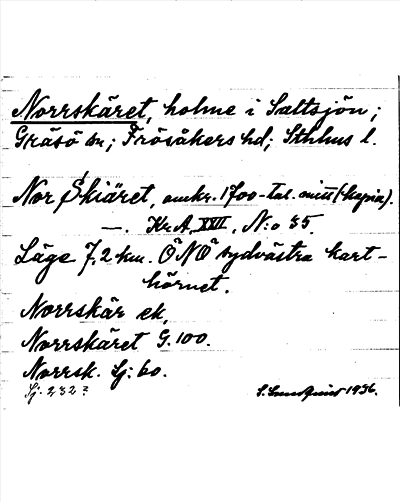 Norrskäret, holme i Saltsjön;
Gräsö sn; Frösåkers hd; Sthlms l.
Nor Skiäret, omkr. 1700-tal. mitt (kopia).
—. Kr.A. XVII, N:o 35.
Läge 7,2 km. ÖNÖ sydvästra kart-
hörnet.
Norrskär ek,
Norrskäret G. 100.
Norrsk. Sj: 60.
Sj. 232?
S. Lundquist 1936.